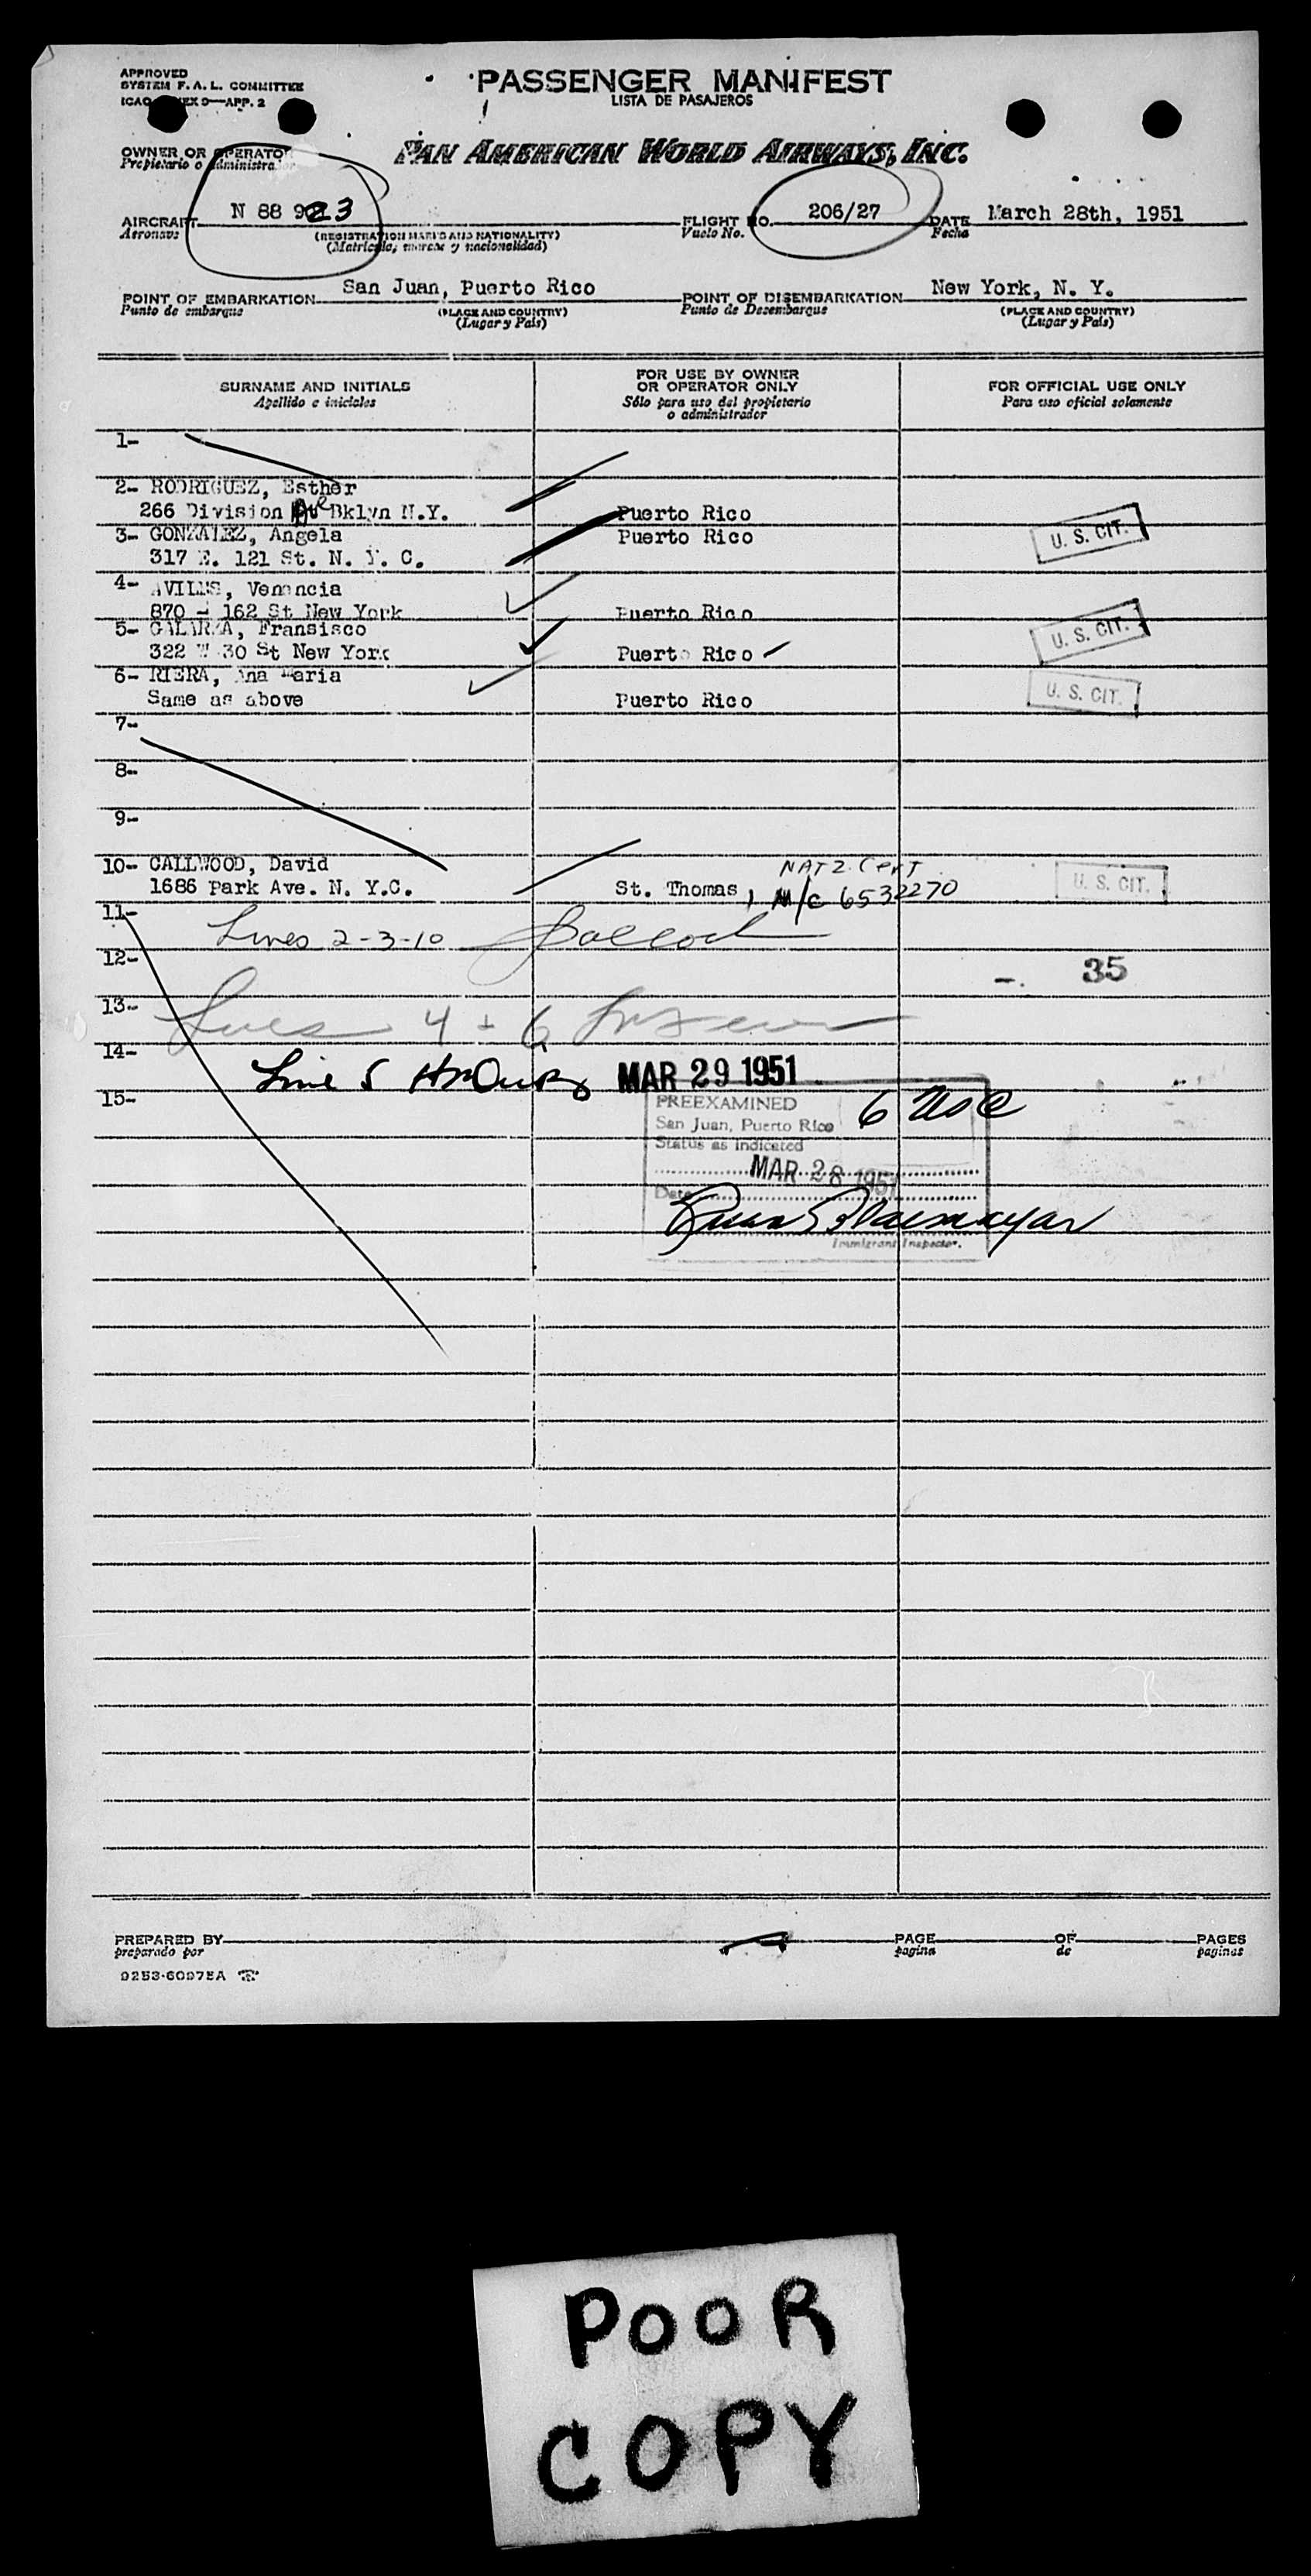 APPROVED
SYSTEM F. A. L. COMMITTEE
ICAO ANNEX 9—APP. 2
PASSENGER MANIFEST
LISTA DE PASAJEROS
OWNER OR OPERATOR
Propietario o administrador
PAN AMERICAN WORLD AIRWAYS, INC.
AIRCRAFT N 88 923 FLIGHT NO. 206/27 DATE March 28th, 1951
Aeronave (REGISTRATION MARKS AND NATIONALITY) Vuelo No. Fecha
(Matricula, marcas y nacionalidad)
POINT OF EMBARKATION San Juan, Puerto Rico POINT OF DISEMBARKATION New York, N. Y.
Punto de embarque (PLACE AND COUNTRY) Punto de Desembarque (PLACE AND COUNTRY)
(Lugar y País) (Lugar y País)
SURNAME AND INITIALS FOR USE BY OWNER OR OPERATOR ONLY FOR OFFICIAL USE ONLY
Apellido e iniciales Sólo para uso del propietario o administrador Para uso oficial solamente
1-
2- RODRIGUEZ, Esther
266 Division Ave Bklyn N.Y. Puerto Rico
3- GONZALEZ, Angela Puerto Rico U. S. CIT.
317 E. 121 St. N. Y. C.
4- AVILES, Venancia
870 - 162 St New York Puerto Rico
5- GALARZA, Fransisco U. S. CIT.
322 W 30 St New York Puerto Rico
6- RIERA, Ana Maria U. S. CIT.
Same as above Puerto Rico
7-
8-
9-
10- CALLWOOD, David NATZ. Cert U. S. CIT.
1686 Park Ave. N. Y.C. St. Thomas, 6532270
11-
Lines 2-3-10
12- 35
13-
Lines 4 + 6
14-
Line 5 MAR 29 1951
15- PREEXAMINED 6 USC
San Juan, Puerto Rico
Status as indicated
MAR 28 1951
Date
Immigrant Inspector.
PREPARED BY PAGE OF PAGES
preparado por pagina de paginas
9253-60975A
POOR
COPY